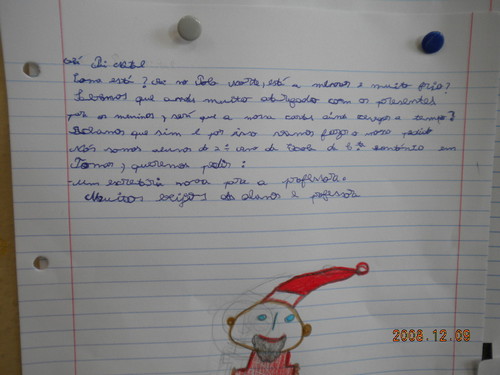 Olá Pai Natal
Como está? Aí no Polo Norte, está a nevar e muito frio?
Sabemos que anda muito atarefado com os presentes
para os meninos, será que a nossa carta ainda chegou a tempo?
Achamos que sim e por isso vamos fazer o nosso pedido
Nós somos alunos do 2º ano da Escola de
Tomar, queremos pedir:
- Um nova para a professora.
Muitos beijos dos alunos e professora
2008.12.09